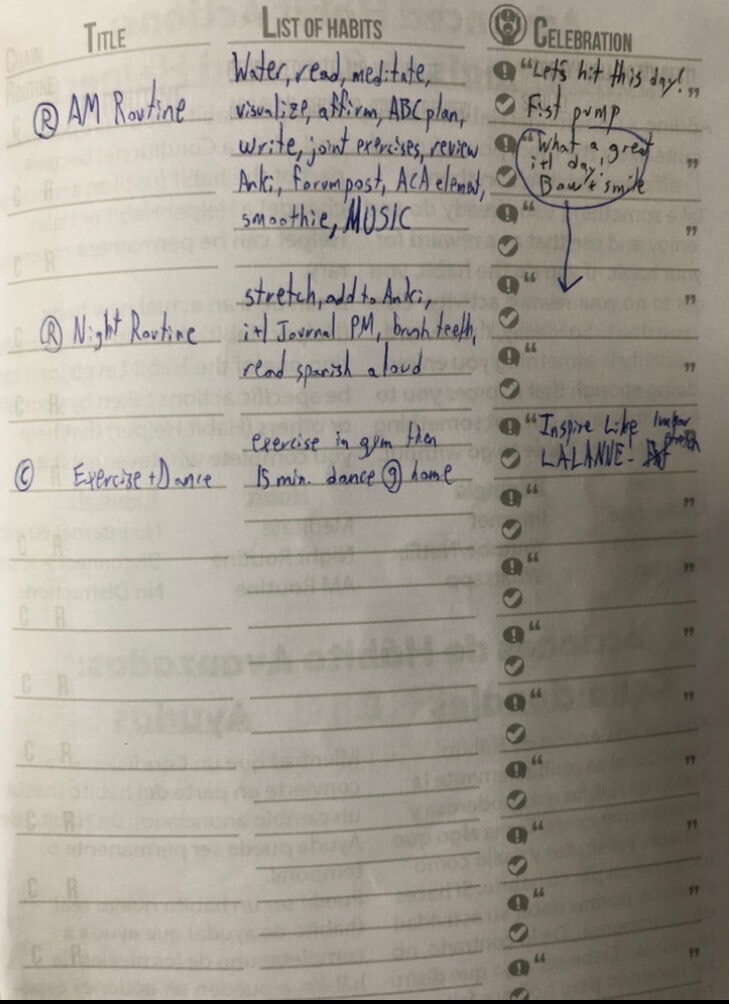 CHAIN
ROUTINE
TITLE
LIST OF HABITS
CELEBRATION
Water, read, meditate,
"Let's hit this day!"
Ⓡ AM Routine
visualize, affirm, ABC plan,
First pump
write, joint exercises, review
"What a great
it1 day!"
Anki, forum post, ACA element,
Bow + smile
smoothie, MUSIC
stretch, add to Anki,
Ⓡ Night Routine
it1 Journal PM, brush teeth,
read spanish aloud
"Inspire Like
exercise in gym then
LALANNE-
Ⓒ Exercise + Dance
15 min. dance @ home
C R
C R
C R
C R
C R
C R
C R
C R